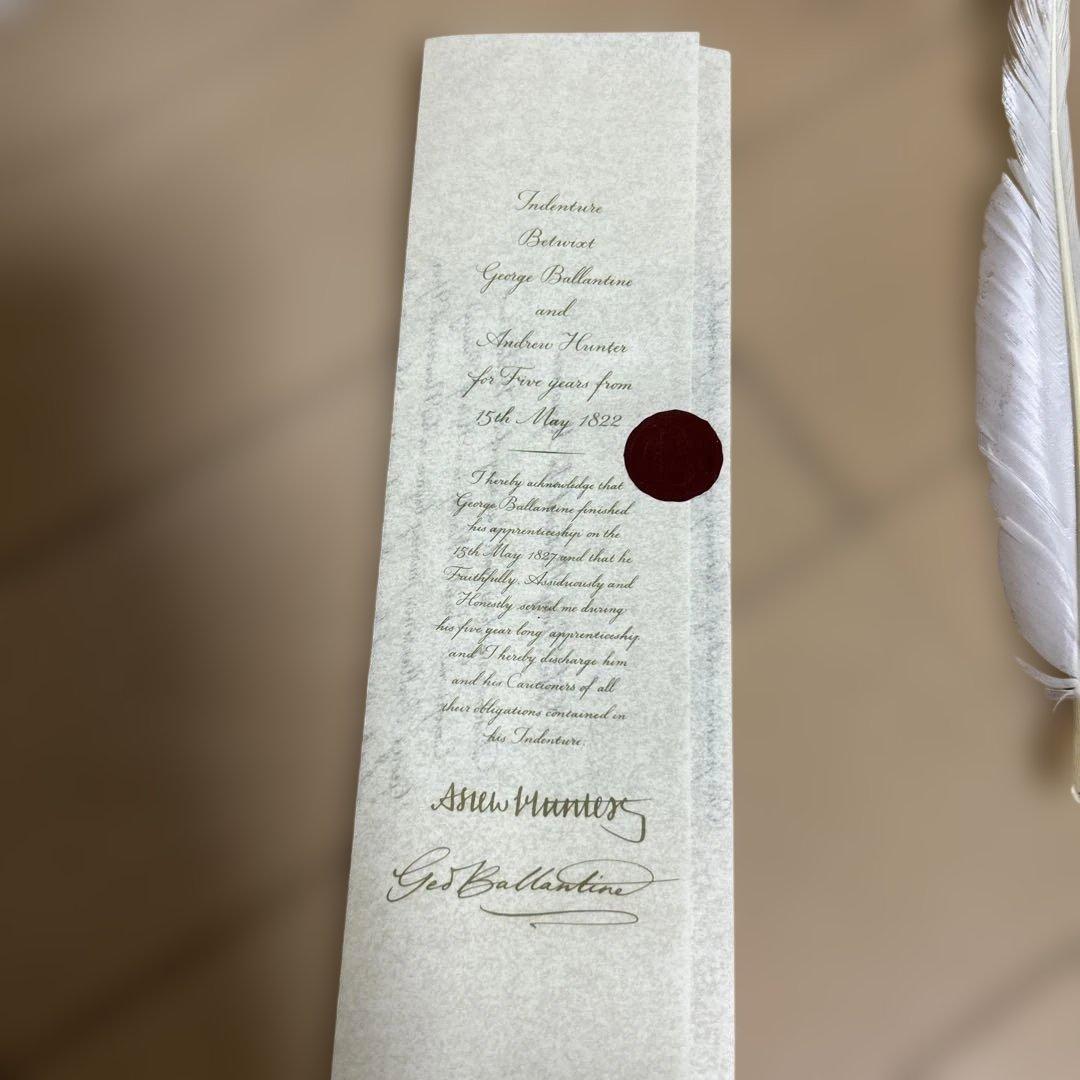 Indenture
Betwixt
George Ballantine
and
Andrew Hunter
for Five years from
15th May 1822
I hereby acknowledge that
George Ballantine finished
his apprenticeship on the
15th May 1827 and that he
Faithfully, Assiduously and
Honestly served me during
his five year long apprenticeship
and I hereby discharge him
and his Cautioners of all
their obligations contained in
his Indenture.
Hunter
Geo Ballantine